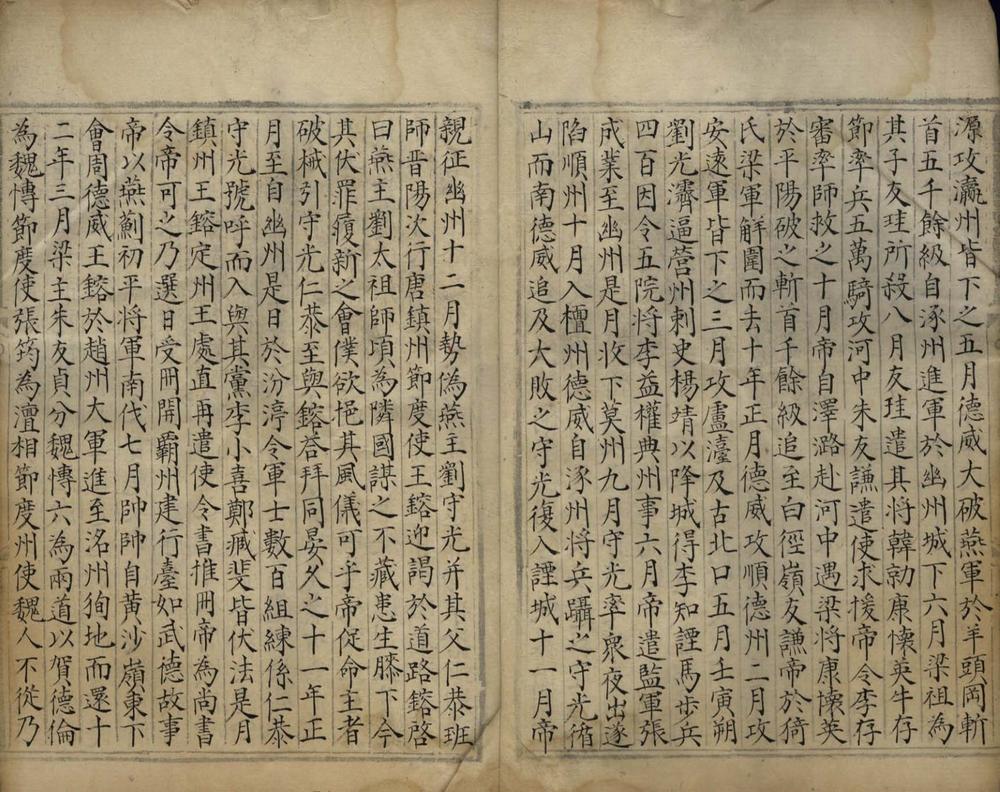 源攻瀛州皆下之五月德威大破燕軍於羊頭岡斬
首五千餘級自涿州進軍於幽州城下六月梁祖為
其子友珪所殺八月友珪遣其將韓勍康懷英牛存
節率兵五萬騎攻河中朱友謙遣使求援帝令李存
審率師救之十月帝自澤潞赴河中遇梁將康懷英
於平陽破之斬首千餘級追至白徑嶺友謙帝於猗
氏梁軍解圍而去十年正月德威攻順德州二月攻
安遠軍皆下之三月攻盧濅及古北口五月壬寅朔
劉光濟逼營州刺史楊靖以降城得李知諲馬步兵
四百因令五院將李益權典州事六月帝遣監軍張
成業至幽州是月收下莫州九月守光率眾夜出遂
陷順州十月入檀州德威自涿州將兵躡之守光循
山而南德威追及大敗之守光復入諲城十一月帝
親征幽州十二月勢偽燕主劉守光并其父仁恭班
師晉陽次行唐鎮州節度使王鎔迎謁於道路鎔啓
曰燕主劉太祖師頃為隣國謀之不藏患生膝下今
其伏罪復新之會僕欲挹其風儀可乎帝促命主者
破械引守光仁恭至與鎔荅拜同晏久之十一年正
月至自幽州是日於汾渟令軍士數百組練係仁恭
守光號呼而入與其黨李小喜鄭臧斐皆伏法是月
鎮州王鎔定州王處直再遣使令書推冊帝為尚書
令帝可之乃選日受冊開霸州建行臺如武德故事
帝以燕薊初平將軍南伐七月帥帥自黃沙嶺東下
會周德威王鎔於趙州大軍進至洺州狥地而還十
二年三月梁主朱友貞分魏愽六為兩道以賀德倫
為魏愽節度使張筠為澶相節度州使魏人不從乃